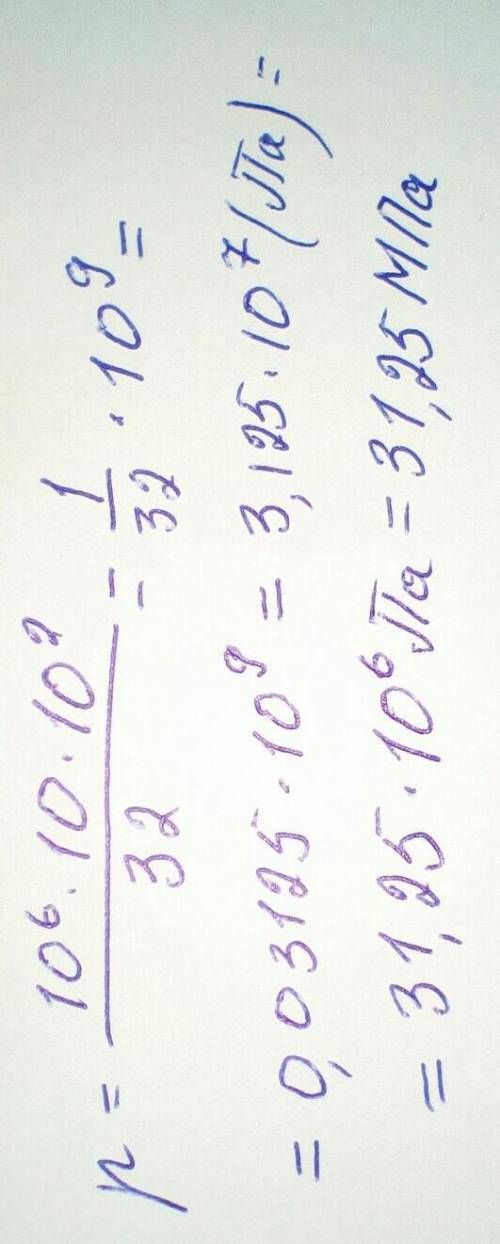 p = 10⁶ · 10 · 10² / 32 = 1/32 · 10⁹ =
= 0,03125 · 10⁹ = 3,125 · 10⁷ (Па) =
= 31,25 · 10⁶ Па = 31,25 МПа